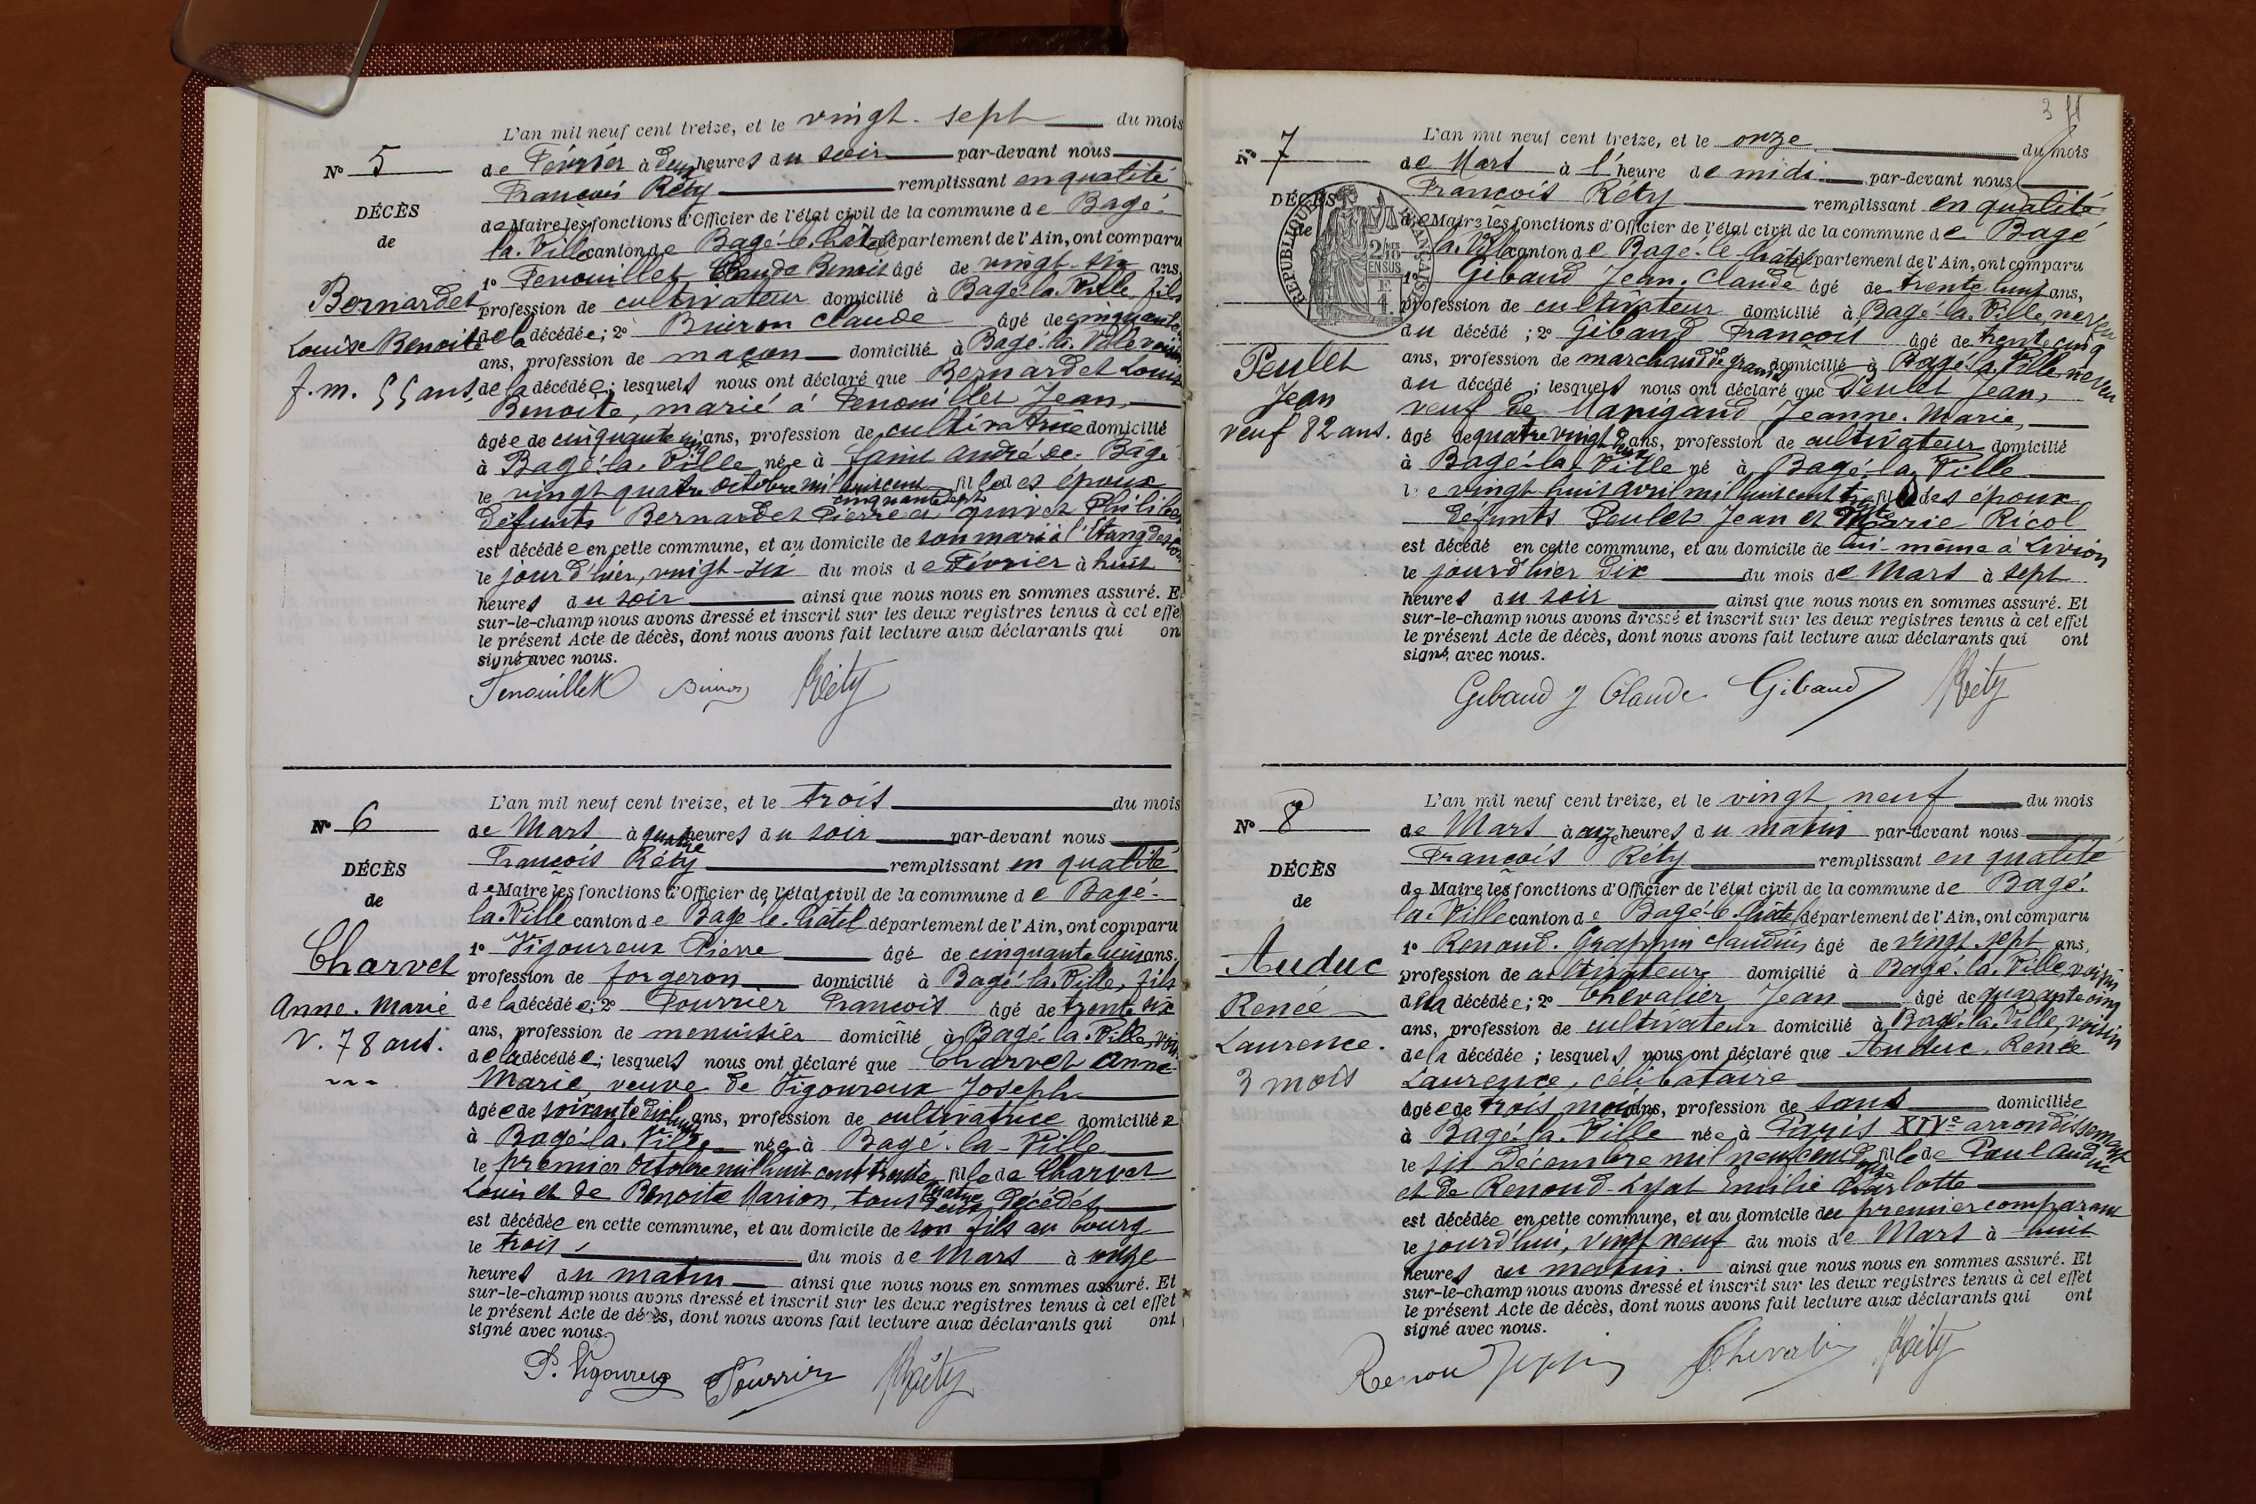 L'an mil neuf cent treize, et le vingt-sept du mois
N° 5
de Février à deux heures du soir par-devant nous
François Réty remplissant en qualité
DÉCÈS
de Maire les fonctions d'Officier de l'état civil de la commune de Bagé-
de
la-Ville canton de Bagé-le-Châtel département de l'Ain, ont comparu
1° Fenouillet Claude Benoit âgé de vingt-six ans,
Bernardet
profession de cultivateur domicilié à Bagé-la-Ville, fils
Louise Benoite
de la décédée; 2° Buiron Claude âgé de cinquante
ans, profession de maçon domicilié à Bagé-la-Ville voisin
f. m. 55 ans.
de la décédée; lesquels nous ont déclaré que Bernardet Louise
Benoite, marié à Fenouillet Jean,
âgée de cinquante ans, profession de cultivatrice domicilié
à Bagé-la-Ville née à Saint André-de-Bagé
le vingt quatre octobre mil huit cent cinquante sept fille des époux
défunts Bernardet Pierre et Philibe
est décédée en cette commune, et au domicile de son mari à l'Étang
le jour d'hier, vingt-six du mois de Février à huit
heures du soir ainsi que nous nous en sommes assuré. E
sur-le-champ nous avons dressé et inscrit sur les deux registres tenus à cet effe
le présent Acte de décès, dont nous avons fait lecture aux déclarants qui on
signé avec nous.
Fenouillet Buiron Réty
L'an mil neuf cent treize, et le trois du mois
N° 6
de Mars à quatre heures du soir par-devant nous
François Réty remplissant en qualité
DÉCÈS
de Maire les fonctions d'Officier de l'état civil de la commune de Bagé-
de
la-Ville canton de Bagé-le-Châtel département de l'Ain, ont comparu
1° Vigoureux Pierre âgé de cinquante huit ans,
Charvet
profession de forgeron domicilié à Bagé-la-Ville, fils
Anne-Marie
de la décédée; 2° Pourrier François âgé de trente six
ans, profession de menuisier domicilié à Bagé-la-Ville, voisin
V. 78 ans.
de la décédée; lesquels nous ont déclaré que Charvet Anne-
Marie, veuve de Vigoureux Joseph
âgée de soixante dix huit ans, profession de cultivatrice domiciliée
à Bagé-la-Ville née à Bagé-la-Ville
le premier Octobre mil huit cent trente quatre fille de Charvet
Louis et de Benoite Marion, tous deux décédés
est décédée en cette commune, et au domicile de son fils au bourg
le trois du mois de Mars à onze
heures du matin ainsi que nous nous en sommes assuré. Et
sur-le-champ nous avons dressé et inscrit sur les deux registres tenus à cet effet
le présent Acte de décès, dont nous avons fait lecture aux déclarants qui ont
signé avec nous.
P. Vigoureux Pourrier Réty
3
L'an mil neuf cent treize, et le onze du mois
N° 7
de Mars à l'heure de midi par-devant nous
François Réty remplissant en qualité
DÉCÈS
de Maire les fonctions d'Officier de l'état civil de la commune de Bagé
de
la-Ville canton de Bagé-le-Châtel département de l'Ain, ont comparu
1° Gibaud Jean-Claude âgé de trente huit ans,
profession de cultivateur domicilié à Bagé-la-Ville, neveu
du décédé; 2° Gibaud François âgé de trente cinq
Peulet
ans, profession de marchand de grains domicilié à Bagé-la-Ville neveu
Jean
du décédé; lesquels nous ont déclaré que Peulet Jean,
veuf de Manigand Jeanne-Marie,
veuf 82 ans.
âgé de quatre vingt deux ans, profession de cultivateur domicilié
à Bagé-la-Ville né à Bagé-la-Ville
le vingt huit avril mil huit cent trente fils des époux
défunts Peulet Jean et Marie Ricol
est décédé en cette commune, et au domicile de lui-même à Livion
le jour d'hier dix du mois de Mars à sept
heures du soir ainsi que nous nous en sommes assuré. Et
sur-le-champ nous avons dressé et inscrit sur les deux registres tenus à cet effet
le présent Acte de décès, dont nous avons fait lecture aux déclarants qui ont
signé avec nous.
Gibaud J Claude Gibaud Réty
L'an mil neuf cent treize, et le vingt neuf du mois
N° 8
de Mars à onze heures du matin par-devant nous
François Réty remplissant en qualité
DÉCÈS
de Maire les fonctions d'Officier de l'état civil de la commune de Bagé-
de
la-Ville canton de Bagé-le-Châtel département de l'Ain, ont comparu
1° Renoud-Grappin Claudius âgé de vingt-sept ans,
Auduc
profession de cultivateur domicilié à Bagé-la-Ville, voisin
Renée
de la décédée; 2° Chevalier Jean âgé de quarante cinq
ans, profession de cultivateur domicilié à Bagé-la-Ville, voisin
Laurence.
de la décédée; lesquels nous ont déclaré que Auduc, Renée
3 mois
Laurence, célibataire
âgée de trois mois ans, profession de sans domiciliée
à Bagé-la-Ville née à Paris XIVe arrondissement
le six Décembre mil neuf cent douze fille de Paul Auduc
et de Renoud-Lyat Emilie Charlotte
est décédée en cette commune, et au domicile du premier comparant
le jourd'hui, vingt neuf du mois de Mars à huit
heures du matin. ainsi que nous nous en sommes assuré. Et
sur-le-champ nous avons dressé et inscrit sur les deux registres tenus à cet effet
le présent Acte de décès, dont nous avons fait lecture aux déclarants qui ont
signé avec nous.
Renoud Grappin Chevalier Réty